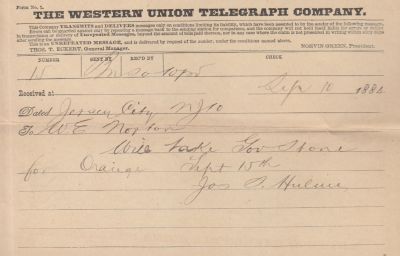 Form No. 1.
THE WESTERN UNION TELEGRAPH COMPANY.
This Company TRANSMITS and DELIVERS messages only on conditions limiting its liability, which have been assented to by the sender of the following message.
Errors can be guarded against only by repeating a message back to the sending station for comparison, and the company will not hold itself liable for errors or delays
in transmission or delivery of Unrepeated Messages, beyond the amount of tolls paid thereon, nor in any case where the claim is not presented in writing within sixty days
after sending the message.
This is an UNREPEATED MESSAGE, and is delivered by request of the sender, under the conditions named above.
THOS. T. ECKERT, General Manager. NORVIN GREEN, President.
NUMBER SENT BY REC'D BY CHECK
15
Sept 10 1884
Received at
Dated Jersey City NJ 10
To W E Norton
Will take Gov Stone
for Orange Sept 15th
Jos P. Hulme